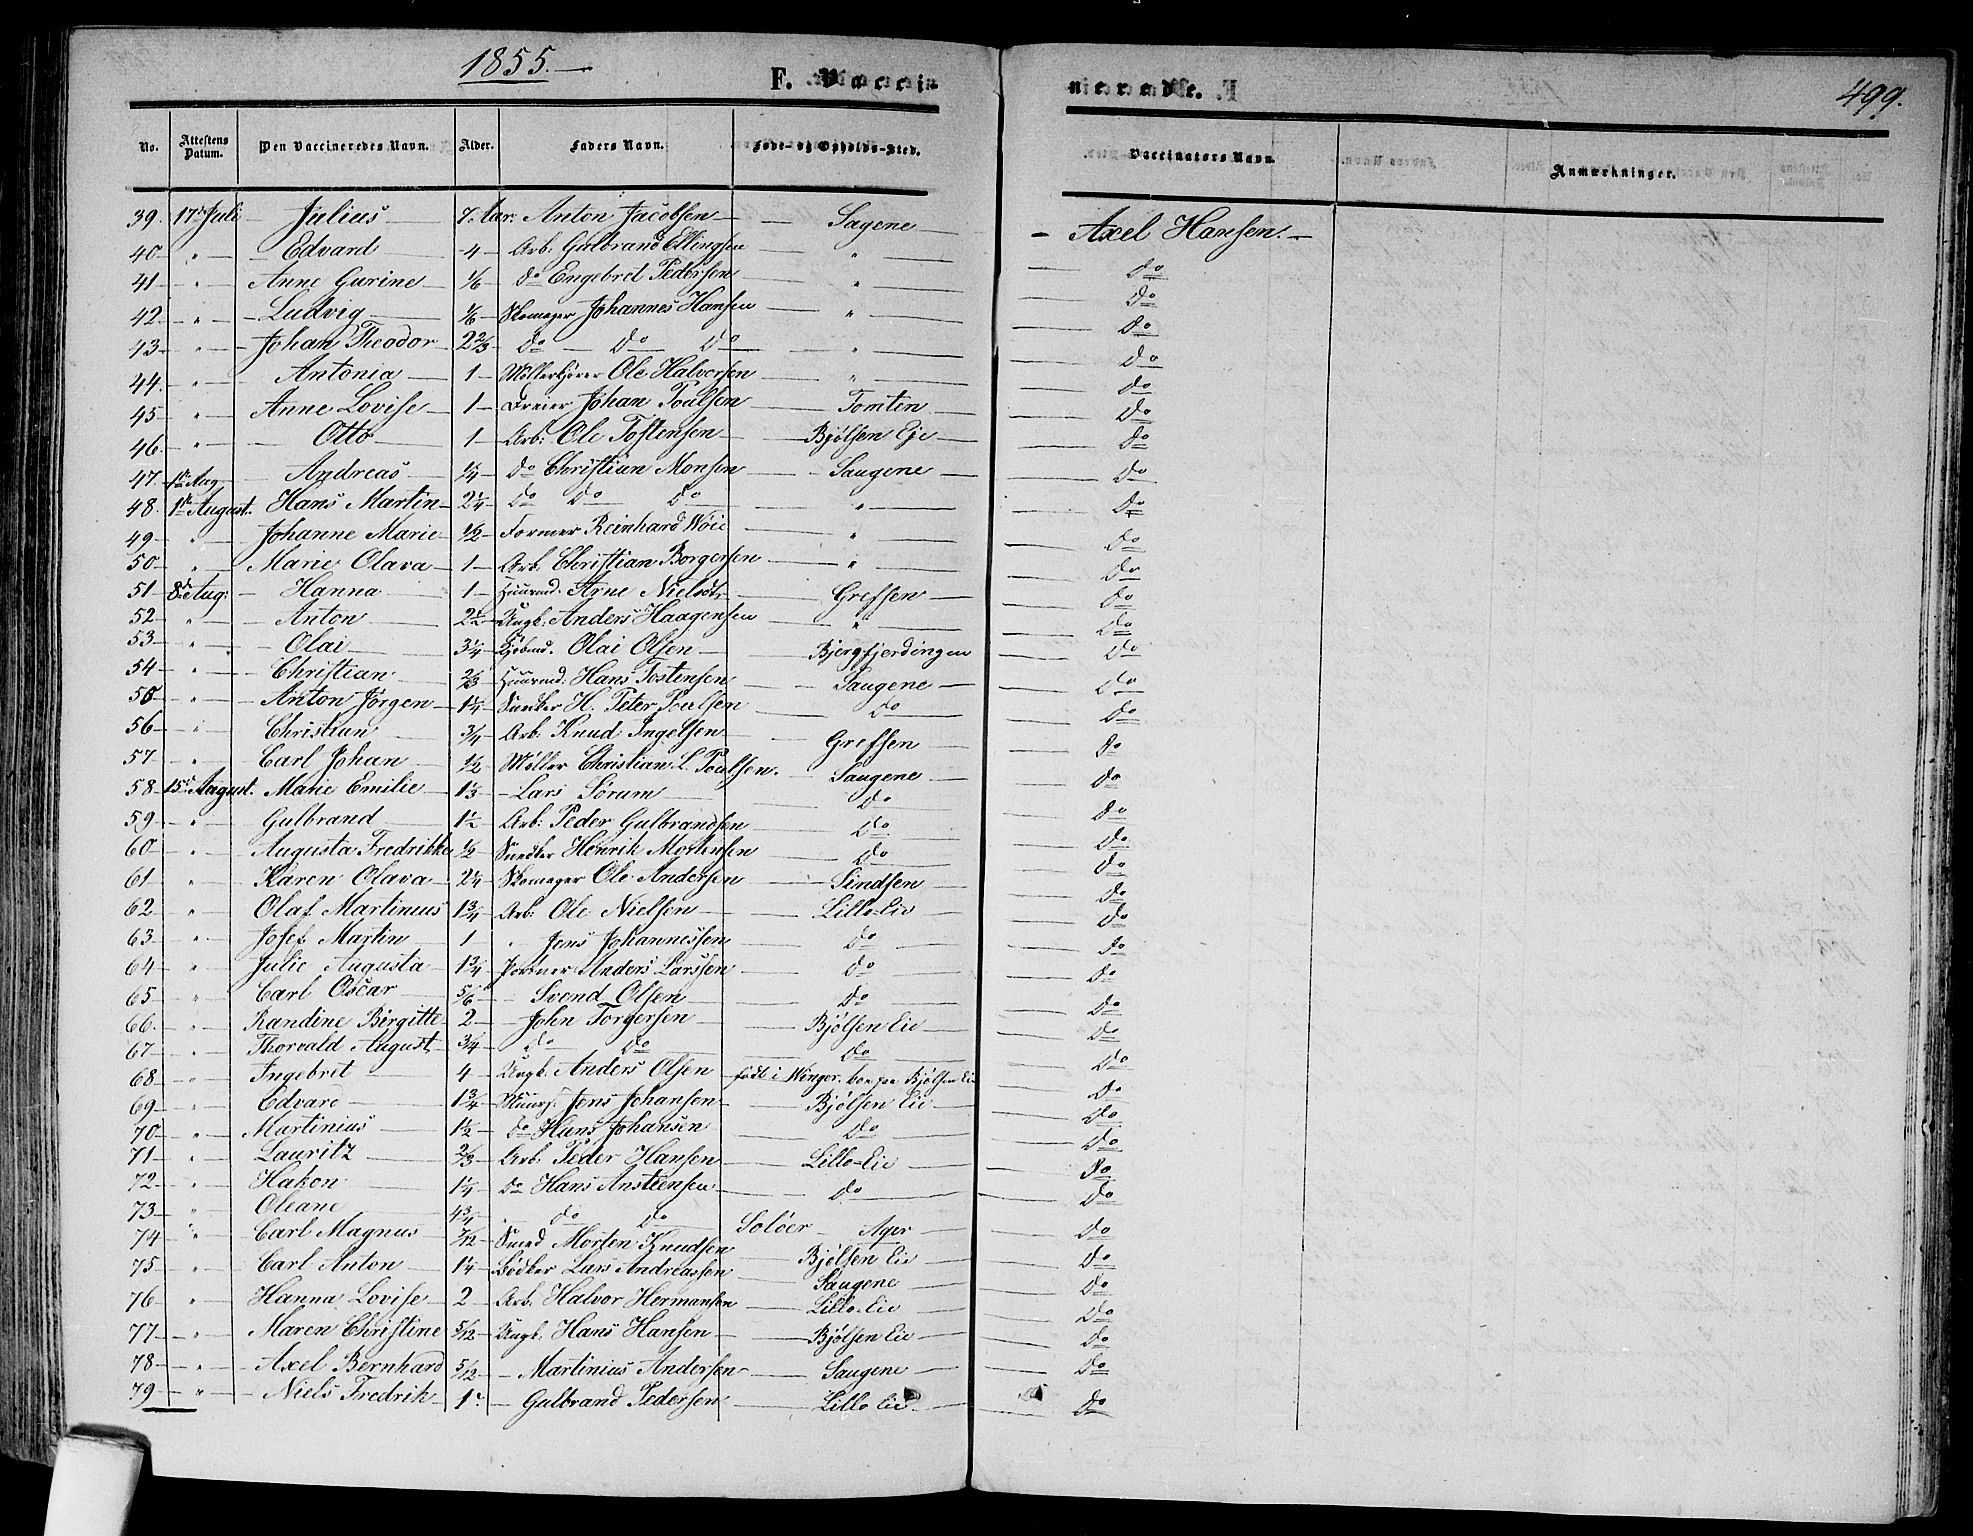 1855.
F. Vaccinerede.
499.
No. Attestens Datum. Den Vaccineredes Navn. Alder. Faders Navn. Føde- og Opholds-Sted. Vaccinators Navn. Anmærkninger.
39. 17de Juli Julius 7 Aar. Anton Jacobsen Sagene Axel Hansen.
40 " Edvard 4 Arb. Gulbrand Ellingsen " Do
41 " Anne Gurine 1/6 do Engebret Pedersen " Do
42 " Ludvig 1/6 Skomager Johannes Hansen " Do
43 " Johan Theodor 2 2/3 do do do " Do
44 " Antonia 1 Møllerkjører Ole Halvorsen " Do
45 " Anne Lovise 1 Dreier Johan Poulsen Tomten Do
46 " Otto 1 Arb: Ole Tostensen Bjølsen Eje Do
47 1ste Aug Andreas 1/4 do Christian Monsen Saugene Do
48. 1ste August. Hans Martin 2 1/4 do do do " Do
49 " Johanne Marie 1/2 Former Reinhard Wøie " Do
50 " Marie Olava 1 Arb. Christian Borgersen " Do
51 8de Aug: Hanna 1 Huusmd. Arne Nielsen Grefsen Do
52 " Anton 2 1/2 Ungk: Anders Haagensen " Do
53 " Olai 3 1/4 Kjøbmd. Olai Olsen Bjergfjerdingen Do
54 " Christian 2/3 Huusmd: Hans Tostensen Saugene Do
55 " Anton Jørgen 1 1/4 Snedker H. Peter Poulsen Do Do
56 " Christian 3/4 Arb. Knud Ingelsen Grefsen Do
57 " Carl Johan 1/2 Møller Christian L. Poulsen. Saugene Do
58 15de August. Marie Emilie 1 1/3 Lars Sørum Do Do
59 " Gulbrand 1 1/2 Arb: Peder Gulbrandsen Do Do
60 " Augusta Fredrikke 1/2 Snedker Henrik Mortensen Do Do
61 " Karen Olava 2 1/4 Skomager Ole Andersen Sindsen Do
62 " Olaf Martinius 1 3/4 Arb: Ole Nielsen Lillo-Eie Do
63 " Josef Martin 1 " Jens Johannessen Do Do
64 " Julie Augusta 1 3/4 Former Anders Larssen Do Do
65 " Carl Oscar 5/6 Svend Olsen Do Do
66. " Randine Birgitte 2 John Torgersen Bjølsen Eie Do
67 " Thorvald August 3/4 do do Do Do
68 " Ingebret 4 Ungk. Anders Olsen født i Winger. boe paa Bjølsen Eie Do
69 " Edvard 1 3/4 Muurs. Jens Johansen Bjølsen Eie Do
70 " Martinius 1 1/2 do Hans Johansen Do Do
71 " Lauritz 2/3 Arb. Peder Hansen Lillo-Eie Do
72 " Hakon 1 1/4 do Hans Ansteensen Do Do
73 " Oleane 4 3/4 do do Soløer Ager Do
74 " Carl Magnus 7/12 Smed Morten Knudsen Bjølsen Eie Do
75 " Carl Anton 1 1/4 Bødker Lars Andreassen Saugene Do
76 " Hanna Lovise 2 Arb. Halvor Hermansen Lillo-Eie Do
77 " Maren Christine 5/12 Ungk. Hans Hansen Bjølsen Eie Do
78 " Axel Bernhard 5/12 Martinius Andersen Saugene Do
79 " Niels Fredrik 1 Gulbrand Pedersen Lillo Eie Do